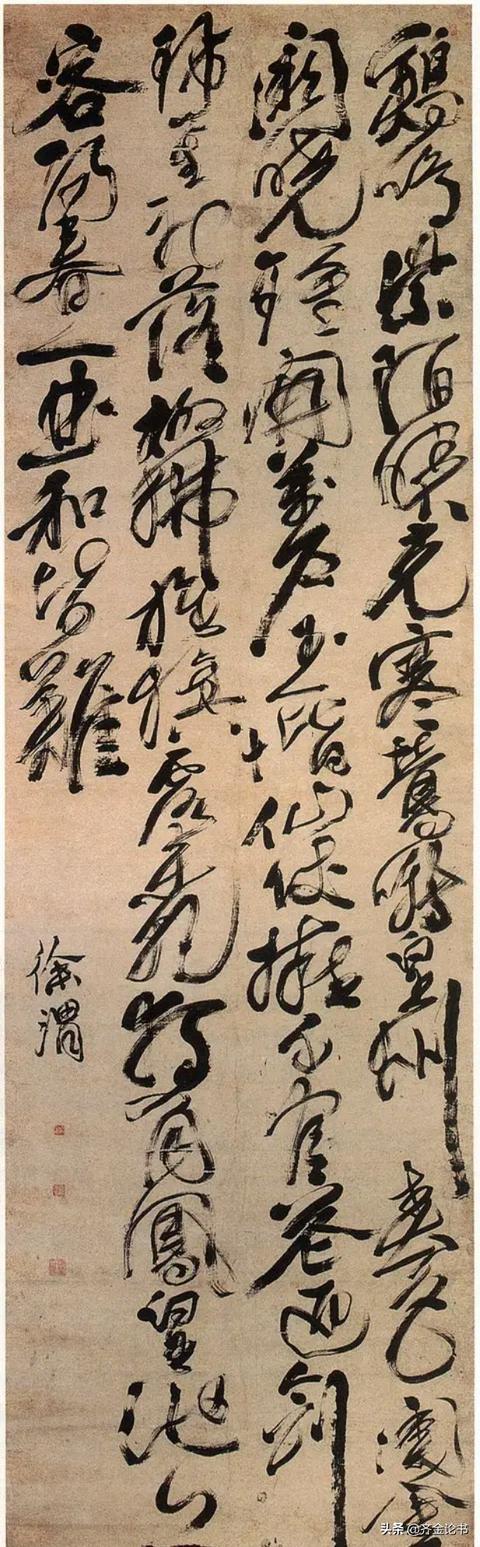 鷄鳴紫陌曙光寒鶯囀皇州春色闌金
闕曉鐘開萬户玉階仙仗擁千官花迎劍
珮星初落柳拂旌旗露未乾獨有鳳皇池上
客陽春一曲和皆難
徐渭
头条 @齐金论书